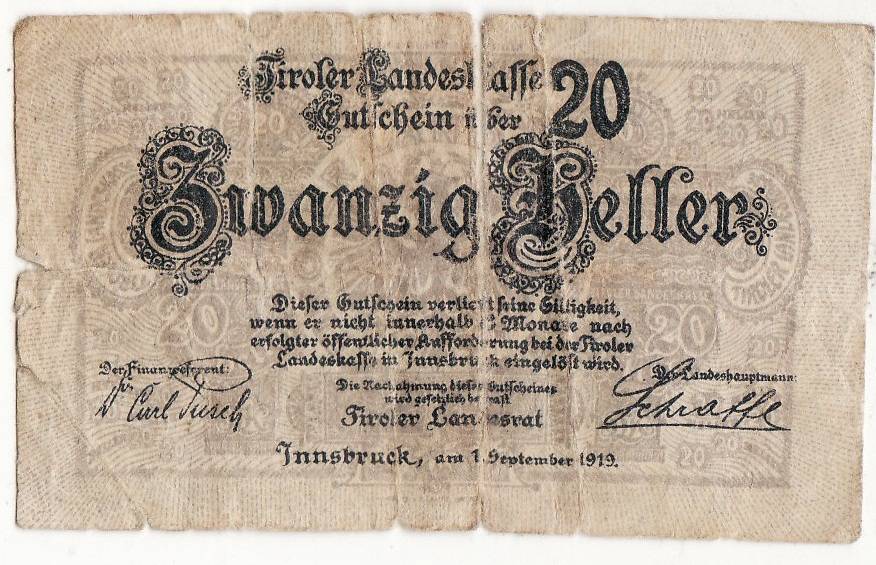 Tiroler Landeskasse
Gutschein über 20
Zwanzig Heller
Dieser Gutschein verliert seine Gültigkeit,
wenn er nicht innerhalb 3 Monate nach
erfolgter öffentlicher Aufforderung bei der Tiroler
Landeskasse in Innsbruck eingelöst wird.
Der Finanzreferent:
Der Landeshauptmann:
Die Nachahmung dieses Gutscheines
wird gesetzlich bestraft
Dr Carl Pusch
Tiroler Landesrat
Schraffl
Innsbruck, am 1. September 1919.
20
20
20
20
20